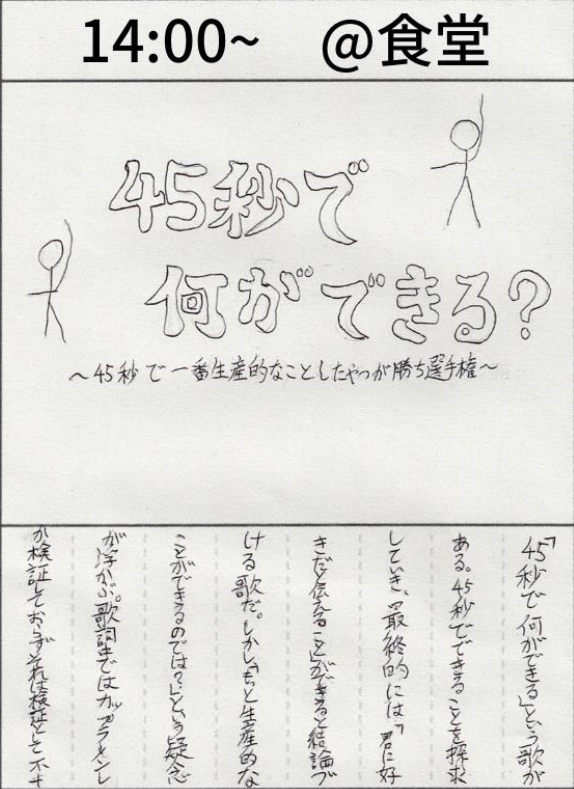 14:00~ @食堂
45秒で
何ができる?
~45秒で一番生産的なことしたやつが勝ち選手権~
「45秒で何ができる」という歌が
ある。45秒でできることを探求
していき、最終的には「君に好
きだと伝えること」ができると結論づ
ける歌だ。しかし「もっと生産的な
ことができるのでは?」という疑念
が浮かぶ。歌詞ではカップラーメンし
か検証しておらずそれは検証として不十